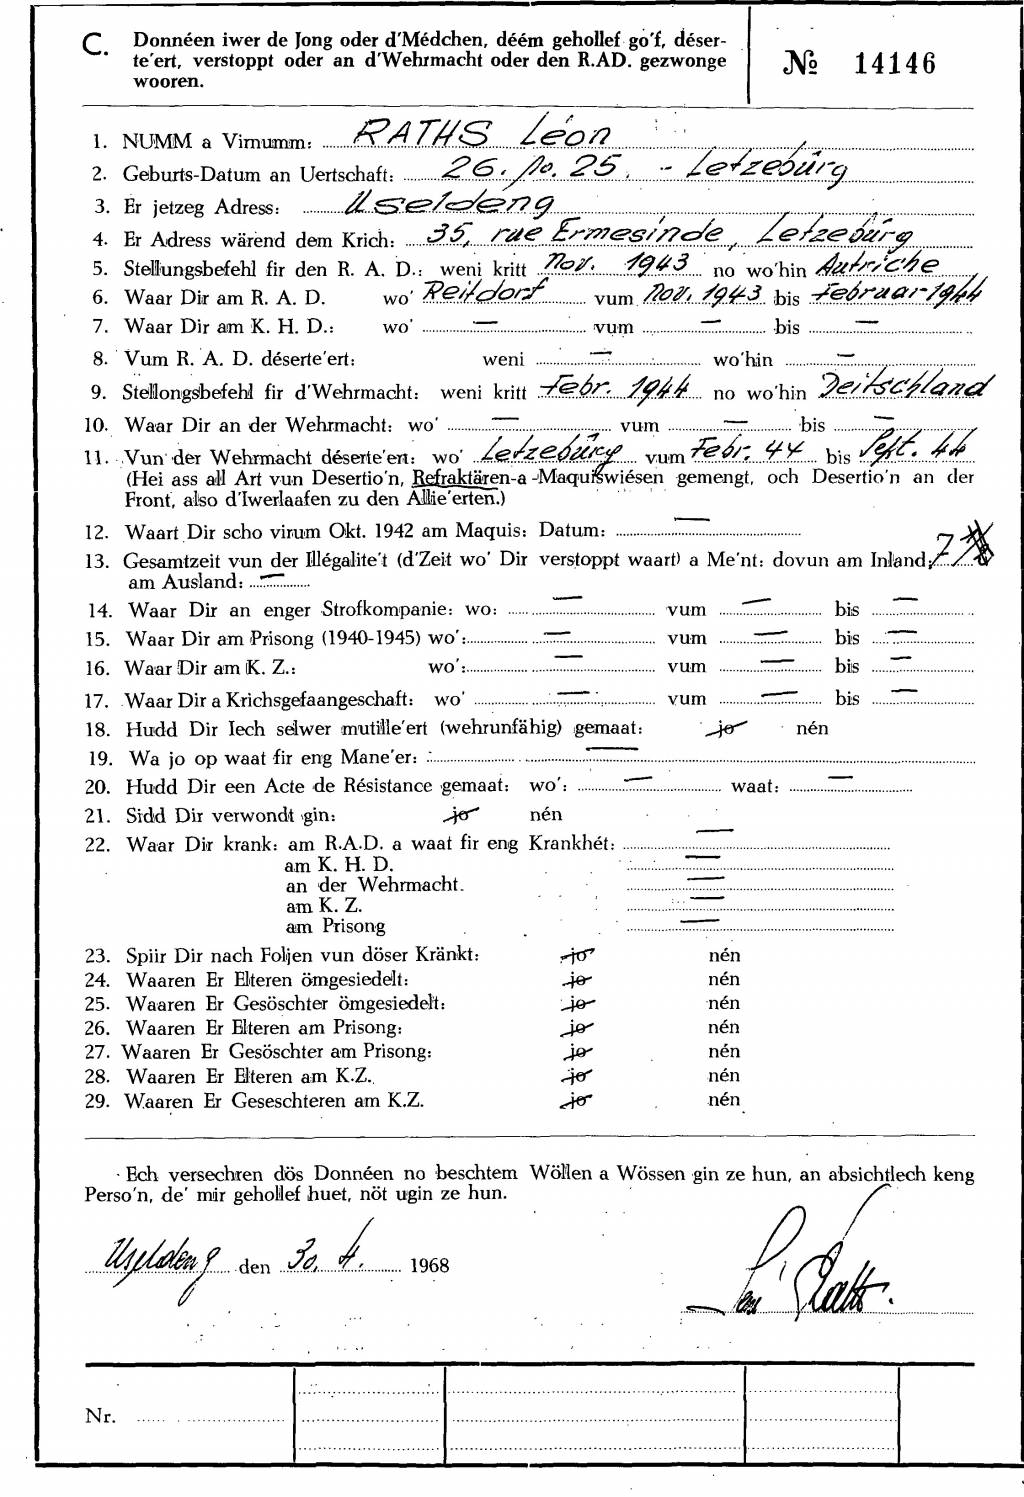 C. Donnéen iwer de Jong oder d'Médchen, déém gehollef go'f, déser-
te'ert, verstoppt oder an d'Wehrmacht oder den R.AD. gezwonge
wooren.
№ 14146
1. NUMM a Virnumm: RATHS Léon
2. Geburts-Datum an Uertschaft: 26. 10. 25. - Letzebürg
3. Er jetzeg Adress: Useldeng
4. Er Adress wärend dem Krich: 35, rue Ermesinde, Letzebürg
5. Stellungsbefehl fir den R. A. D.: weni kritt Nov. 1943 no wo'hin Autriche
6. Waar Dir am R. A. D. wo' Reitdorf vum Nov. 1943 bis Februar 1944
7. Waar Dir am K. H. D.: wo' — vum — bis —
8. Vum R. A. D. déserte'ert: weni — wo'hin —
9. Stellongsbefehl fir d'Wehrmacht: weni kritt Febr. 1944 no wo'hin Deitschland
10. Waar Dir an der Wehrmacht: wo' — vum — bis —
11. Vun der Wehrmacht déserte'ert: wo' Letzebürg vum Febr. 44 bis Sept. 44
(Hei ass all Art vun Desertio'n, Refraktären-a -Maquiswiésen gemengt, och Desertio'n an der
Front, also d'Iwerlaafen zu den Allie'erten.)
12. Waart Dir scho virum Okt. 1942 am Maquis: Datum: —
13. Gesamtzeit vun der Illégalite't (d'Zeit wo' Dir verstoppt waart) a Me'nt: dovun am Inland: 7
am Ausland: —
14. Waar Dir an enger Strofkompanie: wo: — vum — bis —
15. Waar Dir am Prisong (1940-1945) wo': — vum — bis —
16. Waar Dir am K. Z.: wo': — vum — bis —
17. Waar Dir a Krichsgefaangeschaft: wo' — vum — bis —
18. Hudd Dir Iech selwer mutille'ert (wehrunfähig) gemaat: jo nén
19. Wa jo op waat fir eng Mane'er: —
20. Hudd Dir een Acte de Résistance gemaat: wo': — waat: —
21. Sidd Dir verwondt gin: jo nén
22. Waar Dir krank: am R.A.D. a waat fir eng Krankhét: —
am K. H. D. —
an der Wehrmacht. —
am K. Z. —
am Prisong —
23. Spiir Dir nach Foljen vun döser Kränkt: jo nén
24. Waaren Er Elteren ömgesiedelt: jo nén
25. Waaren Er Gesöschter ömgesiedelt: jo nén
26. Waaren Er Elteren am Prisong: jo nén
27. Waaren Er Gesöschter am Prisong: jo nén
28. Waaren Er Elteren am K.Z. jo nén
29. Waaren Er Geseschteren am K.Z. jo nén
Ech versechren dös Donnéen no beschtem Wöllen a Wössen gin ze hun, an absichtlech keng
Perso'n, de' mir gehollef huet, nöt ugin ze hun.
Useldeng den 30. 4. 1968
Léon Raths.
Nr.